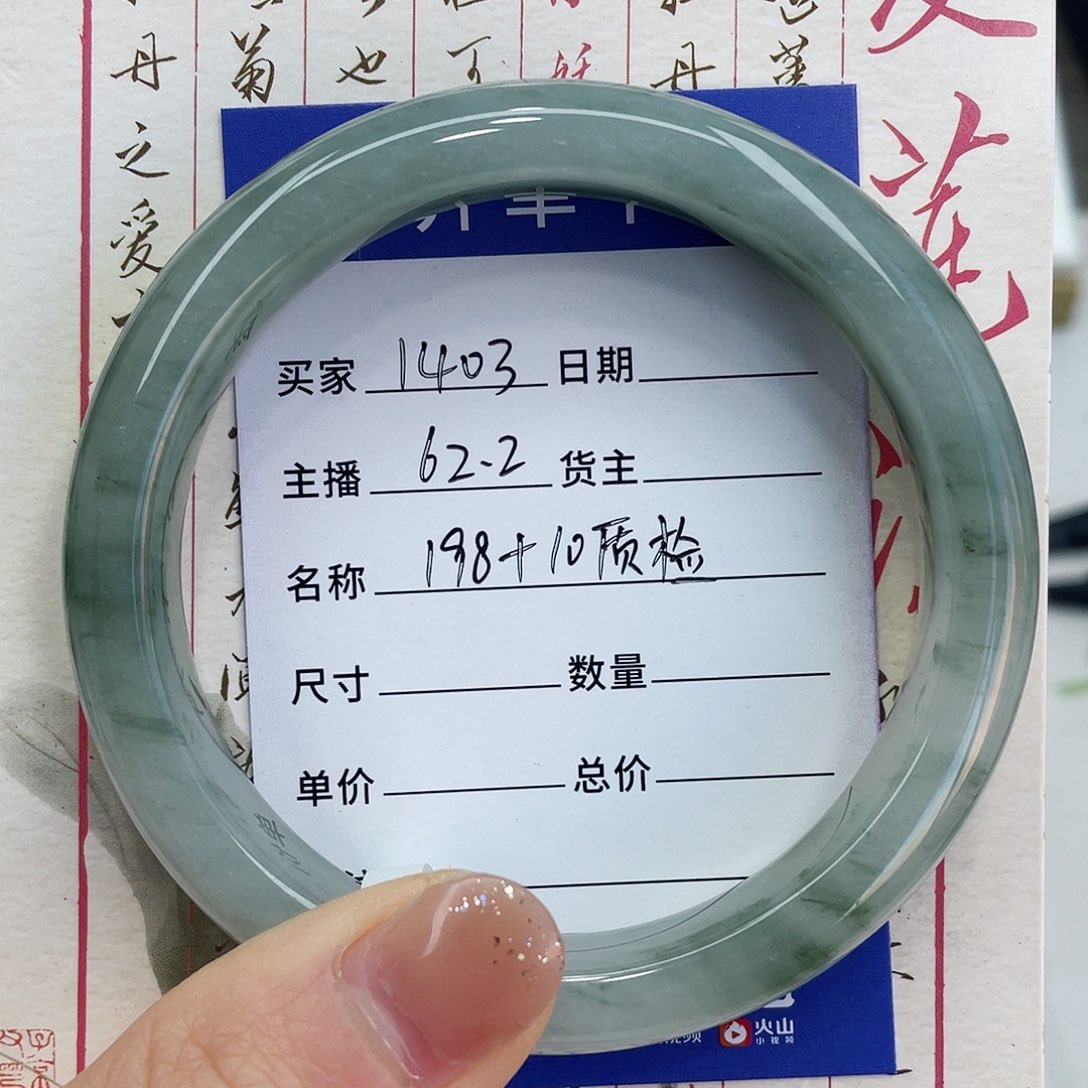 丹之爱
菊
也
可
丹
莲
买家 1403 日期
主播 62.2 货主
名称 198+10质检
尺寸 数量
单价 总价
火山
小视频